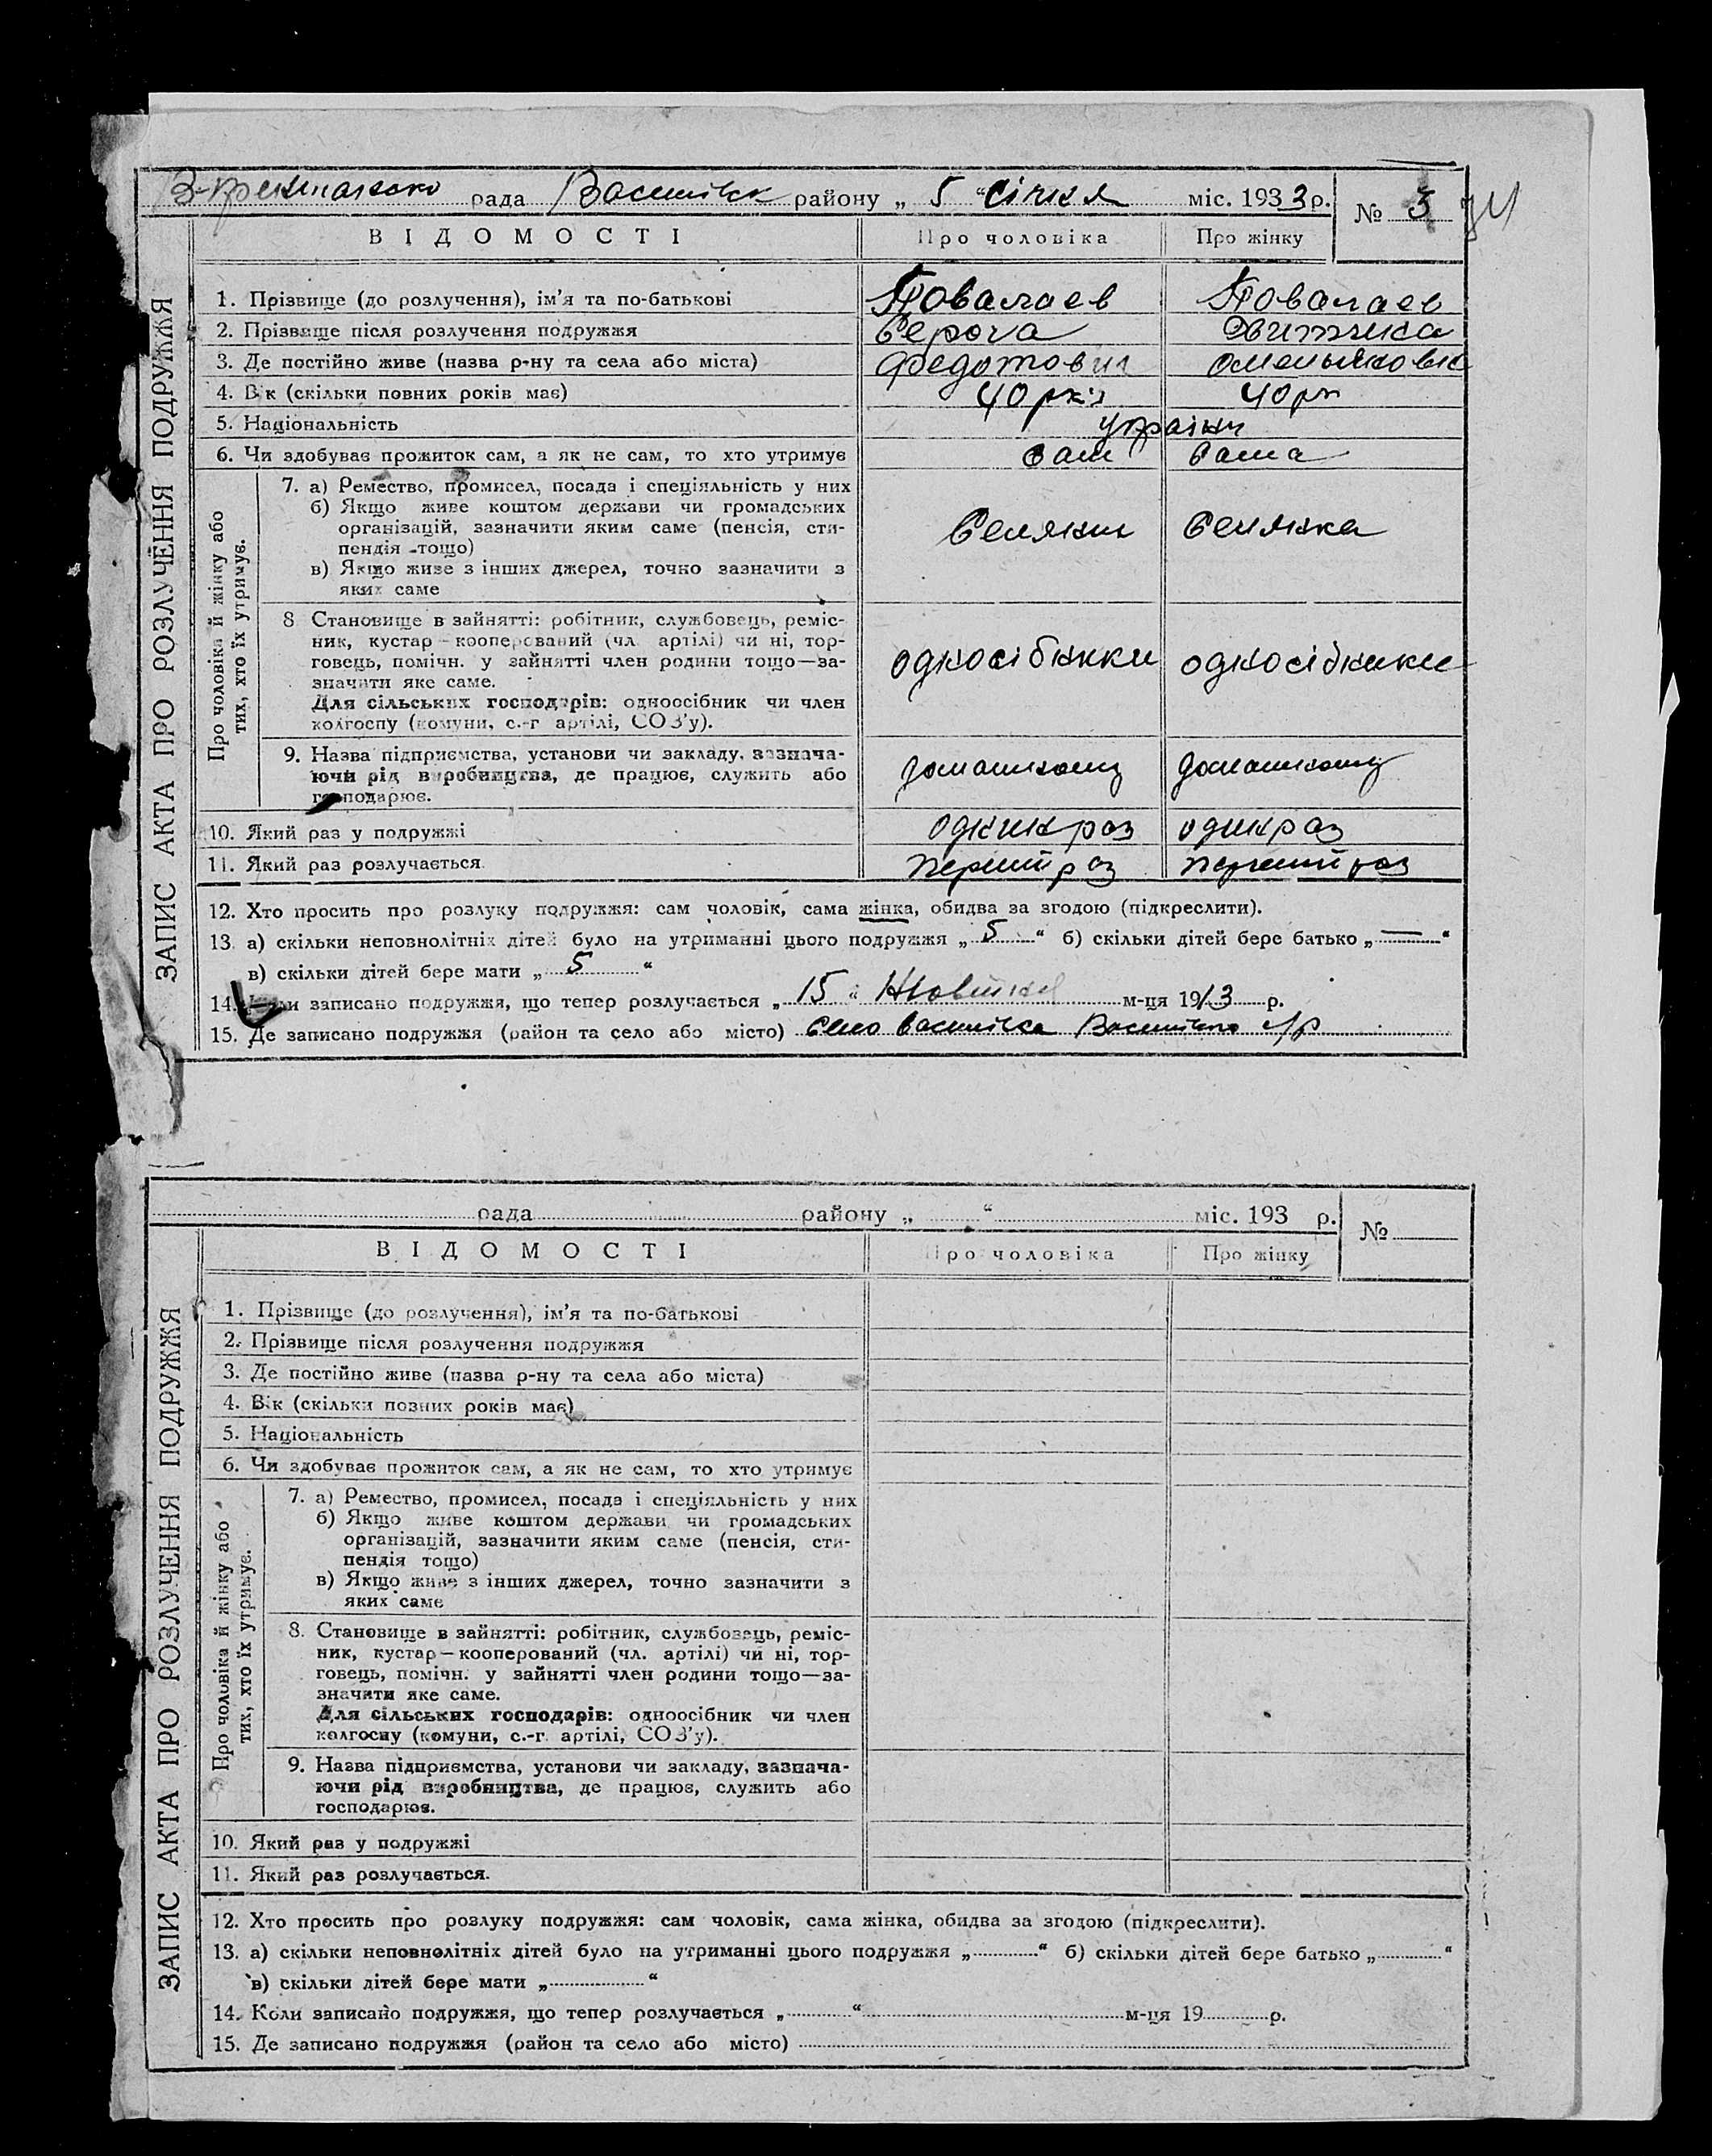 рада Василівск району „ 5 “ січня міс. 1933 р. № 3
ВІДОМОСТІ Про чоловіка Про жінку
ЗАПИС АКТА ПРО РОЗЛУЧЕННЯ ПОДРУЖЖЯ
1. Прізвище (до розлучення), ім'я та по-батькові Повалаев Повалаев
2. Прізвище після розлучення подружжя
3. Де постійно живе (назва р-ну та села або міста) Федотович
4. Вік (скільки повних років має) 40 рків 40 рк
5. Національність україн
6. Чи здобуває прожиток сам, а як не сам, то хто утримує сам сама
Про чоловіка й жінку або
тих, хто їх утримує.
7. а) Ремество, промисел, посада і спеціяльність у них
б) Якщо живе коштом держави чи громадських
організацій, зазначити яким саме (пенсія, сти-
пендія тощо) Селянин Селянка
в) Якщо живе з інших джерел, точно зазначити з
яких саме
8 Становище в зайнятті: робітник, службовець, реміс-
ник, кустар—кооперований (чл. артілі) чи ні, тор-
говець, помічн. у зайнятті член родини тощо—за- односібники односібники
значити яке саме.
Для сільських господарів: одноосібник чи член
колгоспу (комуни, с.-г артілі, СОЗ'у).
9. Назва підприємства, установи чи закладу, зазнача-
ючи рід виробництва, де працює, служить або домашному домашному
господарює.
10. Який раз у подружжі один раз один раз
11. Який раз розлучається перший раз перший раз
12. Хто просить про розлуку подружжя: сам чоловік, сама жінка, обидва за згодою (підкреслити).
13. а) скільки неповнолітніх дітей було на утриманні цього подружжя „ 5 “ б) скільки дітей бере батько „ — “
в) скільки дітей бере мати „ 5 “
14. Коли записано подружжя, що тепер розлучається „ 15 “ м-ця 1913 р.
15. Де записано подружжя (район та село або місто) село Василівка
рада району „ “ міс. 193 р. №
ВІДОМОСТІ Про чоловіка Про жінку
ЗАПИС АКТА ПРО РОЗЛУЧЕННЯ ПОДРУЖЖЯ
1. Прізвище (до розлучення), ім'я та по-батькові
2. Прізвище після розлучення подружжя
3. Де постійно живе (назва р-ну та села або міста)
4. Вік (скільки повних років має)
5. Національність
6. Чи здобуває прожиток сам, а як не сам, то хто утримує
Про чоловіка й жінку або
тих, хто їх утримує.
7. а) Ремество, промисел, посада і спеціяльність у них
б) Якщо живе коштом держави чи громадських
організацій, зазначити яким саме (пенсія, сти-
пендія тощо)
в) Якщо живе з інших джерел, точно зазначити з
яких саме
8. Становище в зайнятті: робітник, службовець, реміс-
ник, кустар—кооперований (чл. артілі) чи ні, тор-
говець, помічн. у зайнятті член родини тощо—за-
значити яке саме.
Для сільських господарів: одноосібник чи член
колгоспу (комуни, с.-г. артілі, СОЗ'у).
9. Назва підприємства, установи чи закладу, зазнача-
ючи рід виробництва, де працює, служить або
господарює.
10. Який раз у подружжі
11. Який раз розлучається.
12. Хто просить про розлуку подружжя: сам чоловік, сама жінка, обидва за згодою (підкреслити).
13. а) скільки неповнолітніх дітей було на утриманні цього подружжя „ “ б) скільки дітей бере батько „ “
в) скільки дітей бере мати „ “
14. Коли записано подружжя, що тепер розлучається „ “ м-ця 19 р.
15. Де записано подружжя (район та село або місто)